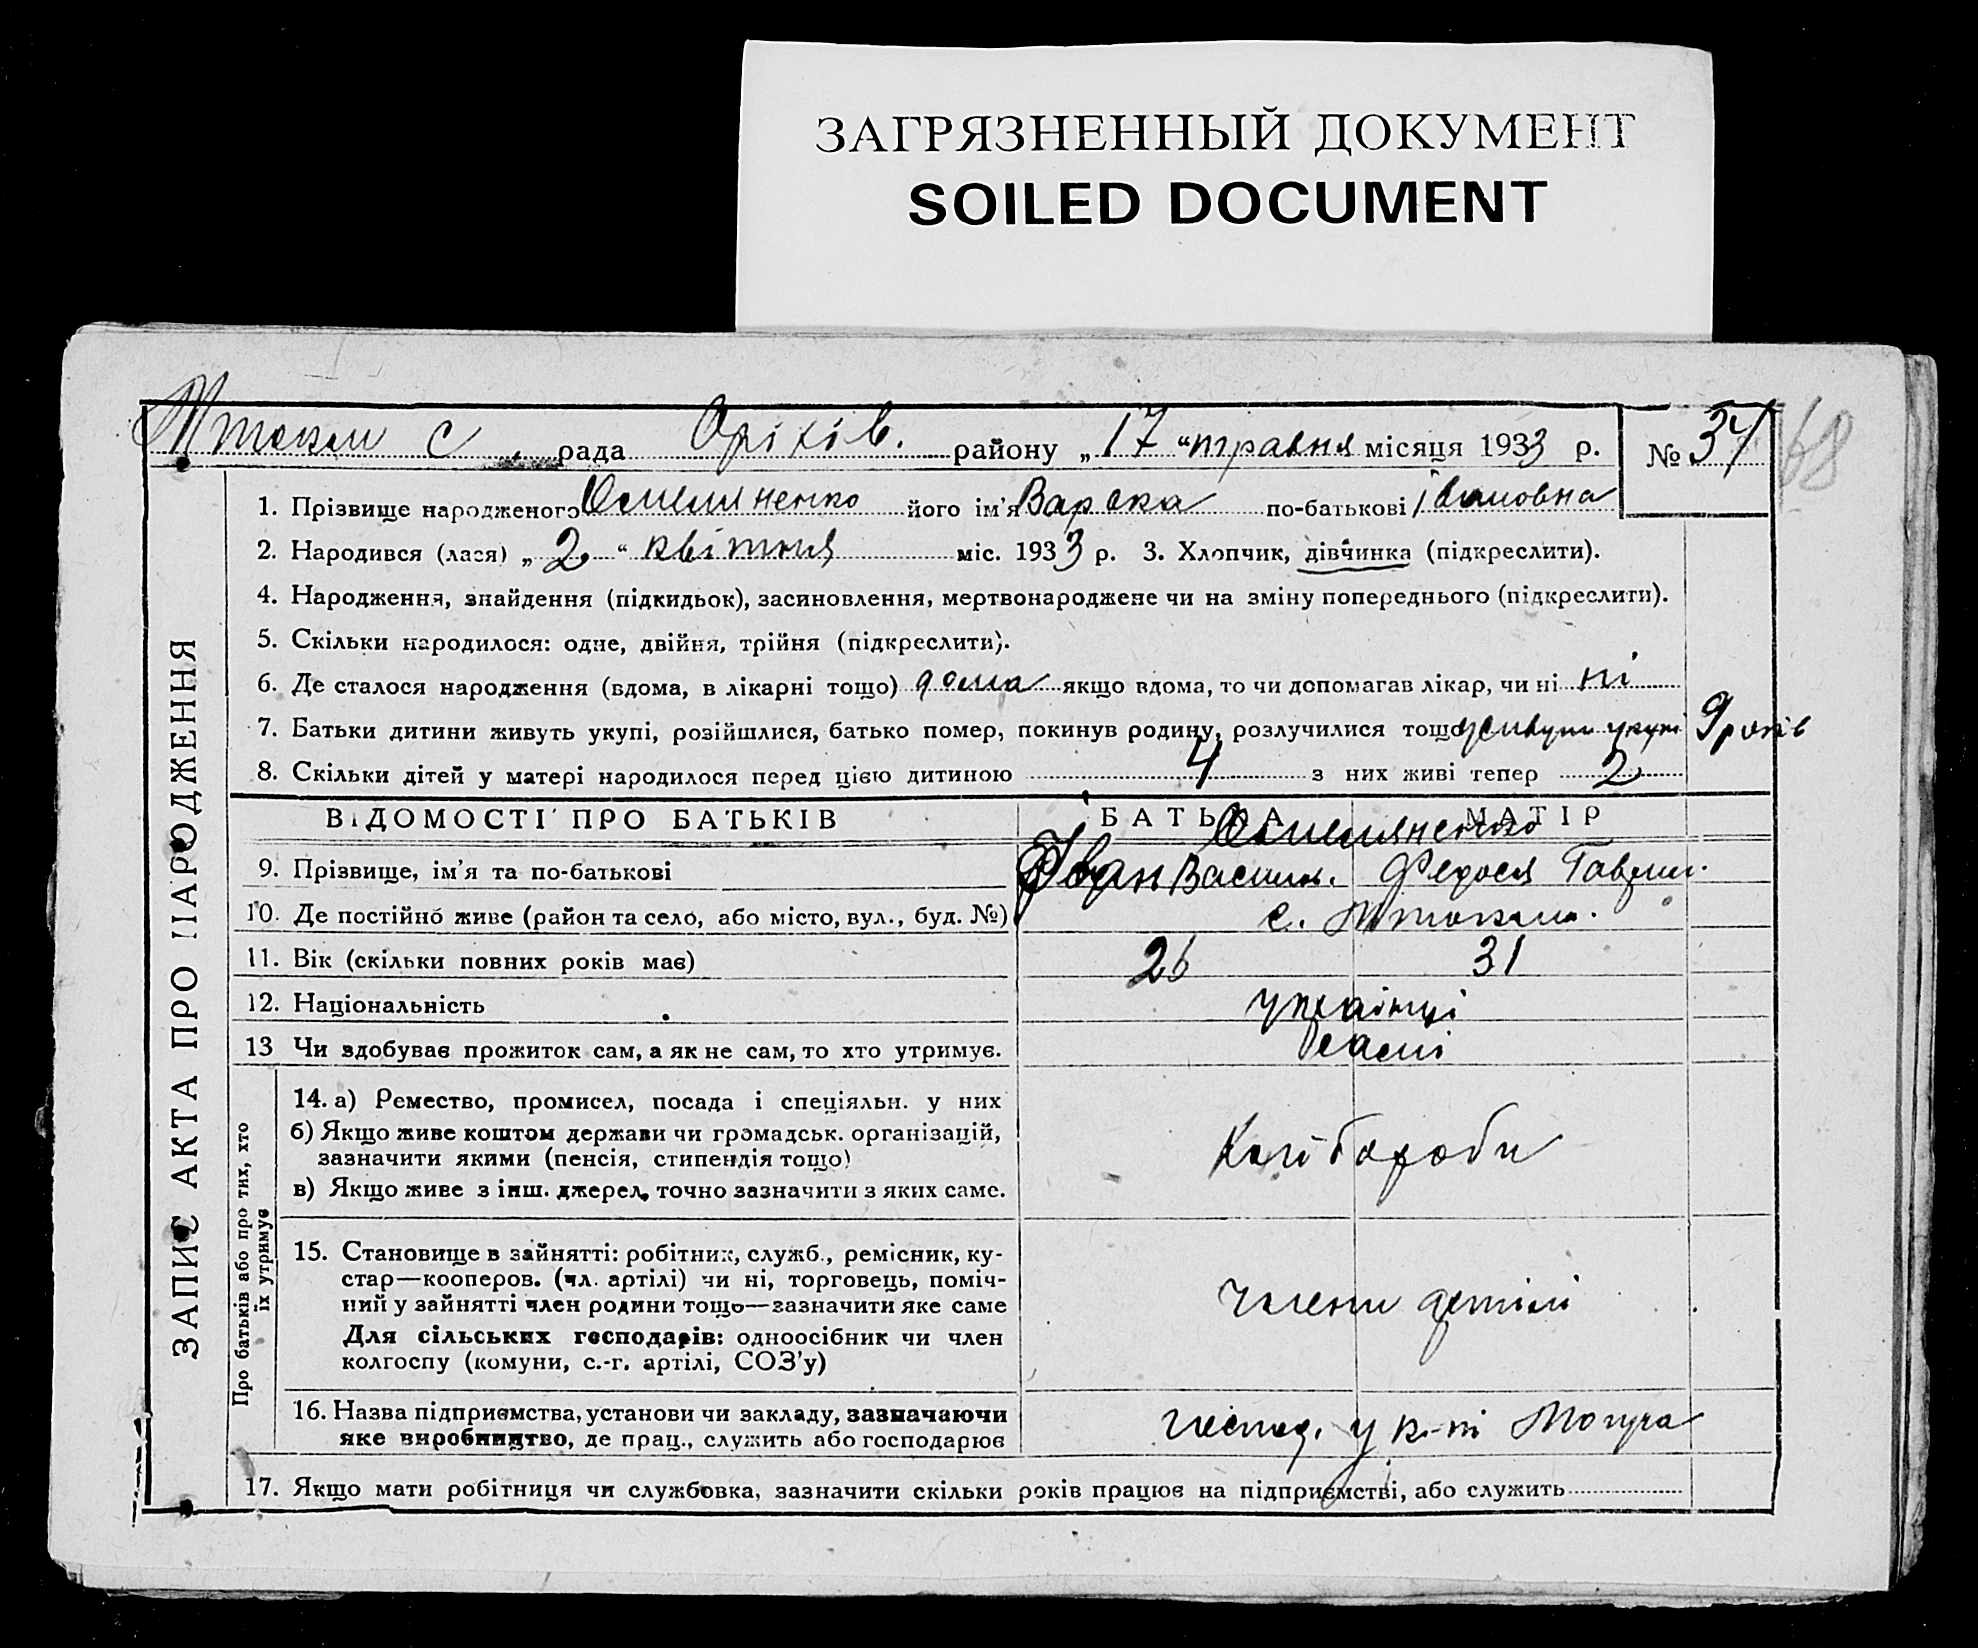 ЗАГРЯЗНЕННЫЙ ДОКУМЕНТ
SOILED DOCUMENT
с. рада Оріхів. району „17“ травня місяця 1933 р. № 37
68
1. Прізвище народженого Омеляненко його ім'я Варвка по-батькові Івановна
2. Народився (лася) „2“ квітня міс. 1933 р. 3. Хлопчик, дівчинка (підкреслити).
4. Народження, знайдення (підкидьок), засиновлення, мертвонароджене чи на зміну попереднього (підкреслити).
5. Скільки народилося: одне, двійня, трійня (підкреслити).
6. Де сталося народження (вдома, в лікарні тощо) дома якщо вдома, то чи допомагав лікар, чи ні ні
7. Батьки дитини живуть укупі, розійшлися, батько помер, покинув родину, розлучилися тощо живуть укупі 9 років
8. Скільки дітей у матері народилося перед цією дитиною 4 з них живі тепер 2
ВІДОМОСТІ ПРО БАТЬКІВ БАТЬКА МАТІР
Омеляненко
9. Прізвище, ім'я та по-батькові Іван Васил. Федося Гаврил.
10. Де постійно живе (район та село, або місто, вул., буд. №) с.
11. Вік (скільки повних років має) 26 31
12. Національність українці
13 Чи здобуває прожиток сам, а як не сам, то хто утримує. самі
14. а) Ремество, промисел, посада і спеціяльн. у них
б) Якщо живе коштом держави чи громадськ. організацій,
зазначити якими (пенсія, стипендія тощо)
в) Якщо живе з інш. джерел, точно зазначити з яких саме.
Хлібороби
15. Становище в зайнятті: робітник, служб., ремісник, ку-
стар—кооперов. (чл. артілі) чи ні, торговець, поміч-
ний у зайнятті член родини тощо—зазначити яке саме
Для сільських господарів: одноосібник чи член
колгоспу (комуни, с.-г. артілі, СОЗ'у)
члени артілі
16. Назва підприємства, установи чи закладу, зазначаючи
яке виробництво, де прац., служить або господарює
господ. у к-пі
17. Якщо мати робітниця чи службовка, зазначити скільки років працює на підприємстві, або служить
ЗАПИС АКТА ПРО НАРОДЖЕННЯ
Про батьків або про тих, хто
їх утримує